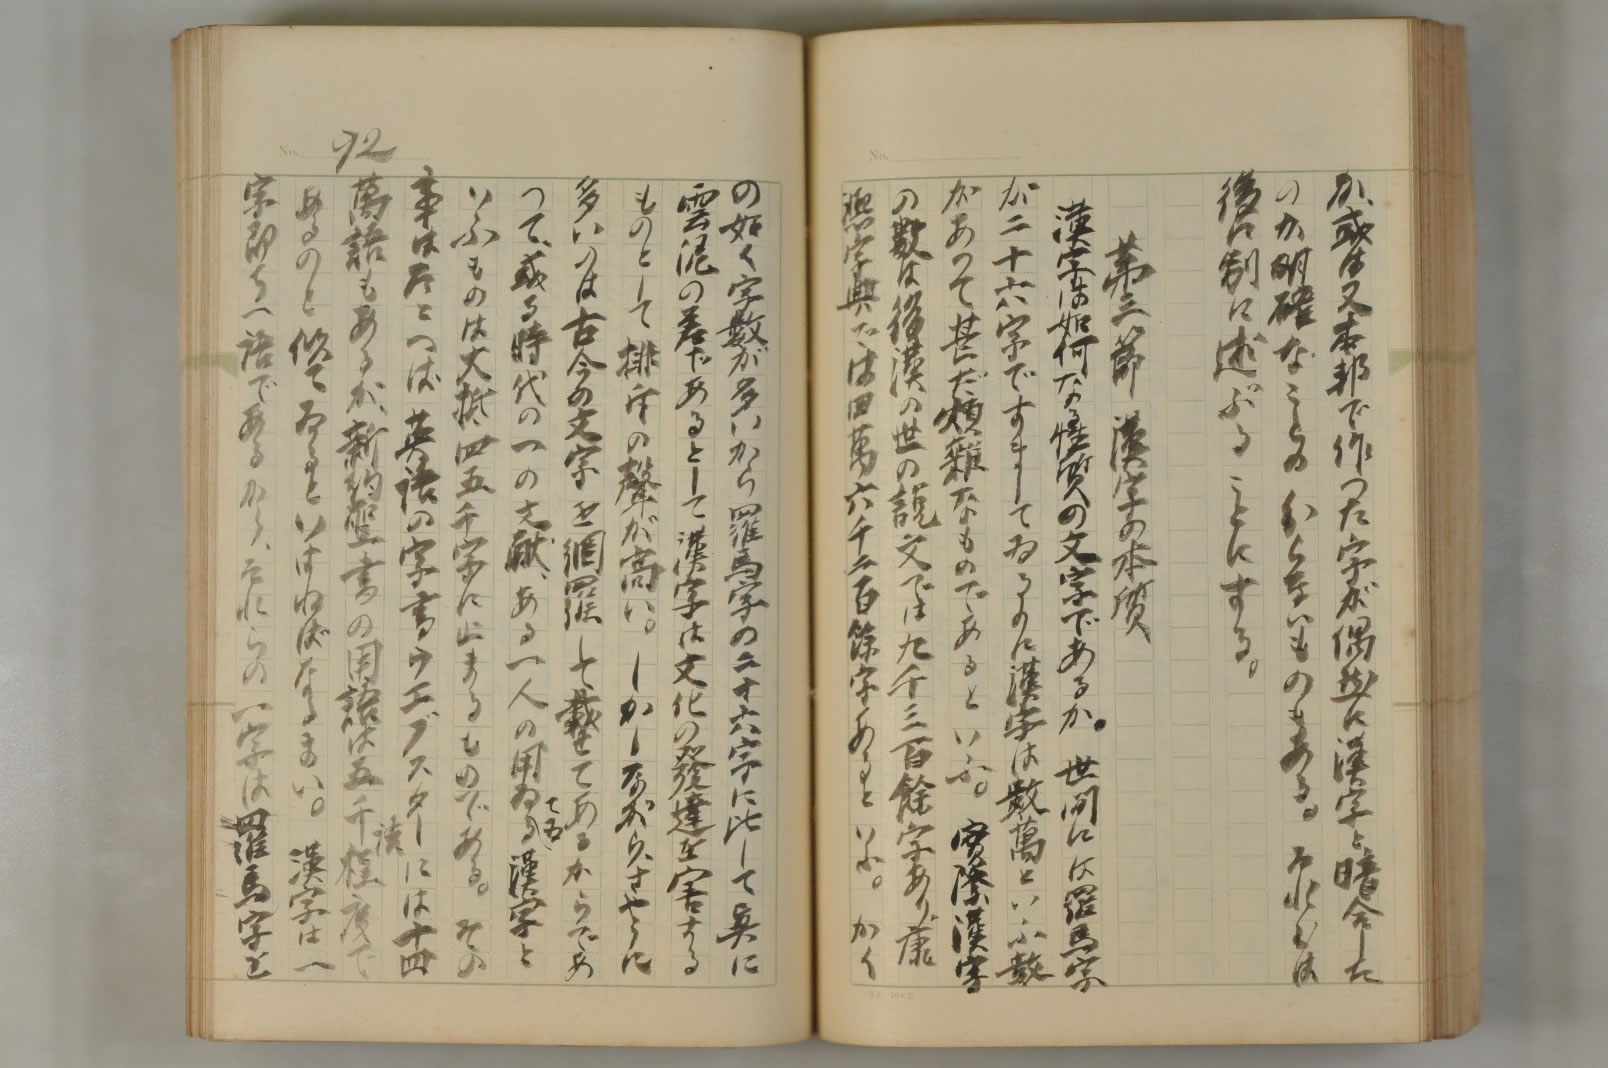 か、或は又本邦で作つた字が偶然に漢字と暗合した
のか明確なことの分らないものもある。それらは
後に別に述べることにする。
第三節 漢字の本質
漢字は如何なる性質の文字であるか。世間には羅馬字
が二十六字ですましてゐるのに漢字は数萬といふ数
があつて甚だ煩雑なものであるといふ。實際漢字
の数は後漢の世の説文では九千三百餘字あり、康
熙字典では四萬六千二百餘字あるといふ。かく
No.
92
No.
の如く字数が多いから羅馬字の二十六字に比して実に
雲泥の差があるとして漢字は文化の發達を害する
ものとして排斥の聲が高い。しかしながら、さやうに
多いのは古今の文字を網羅して載せてあるからであ
つて、或る時代の一つの文献、ある一人の用ゐる漢字と
てゐ
いふものは大概四五千字に止まるものである。その
事はたとへば英語の字書ウエブスターには十四
萬語もあるが、新約聖書の用語は五千程度で
あるのと似てゐるといはねばなるまい。漢字は一
字即ち一語であるから、それらの一字は羅馬字を